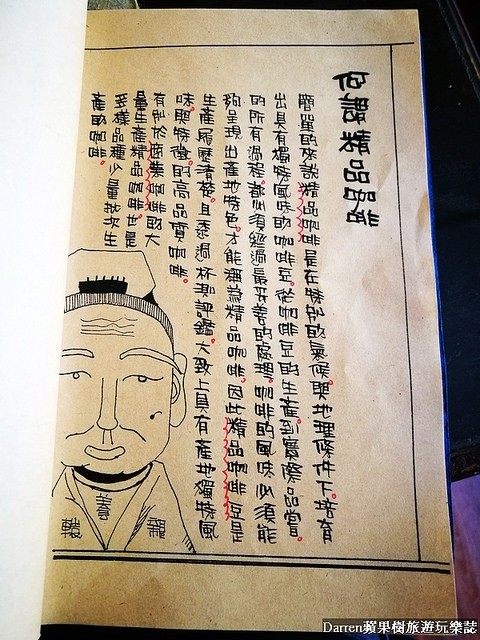 包裝精品咖啡
簡單的來說精品咖啡是在特別的氣候與地理條件下。培育
出具有獨特風味的咖啡豆。從咖啡豆的生產到實際品嘗。
的所有過程都必須經過最妥善的處理。咖啡的風味必須能
夠呈現出產地特色。才能稱為精品咖啡。因此精品咖啡豆是
生產履歷清楚。且透過杯測評鑑。大致上具有產地獨特風
味與特徵的高品質咖啡。
有別於商業咖啡的大
量生產精品咖啡也是
多樣品種少量批次生
產的咖啡。
Darren蘋果樹旅遊玩樂誌